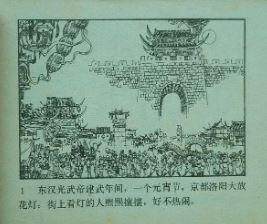 1 东汉光武帝建武年间，一个元宵节，京都洛阳大放
花灯；街上看灯的人熙熙攘攘，好不热闹。